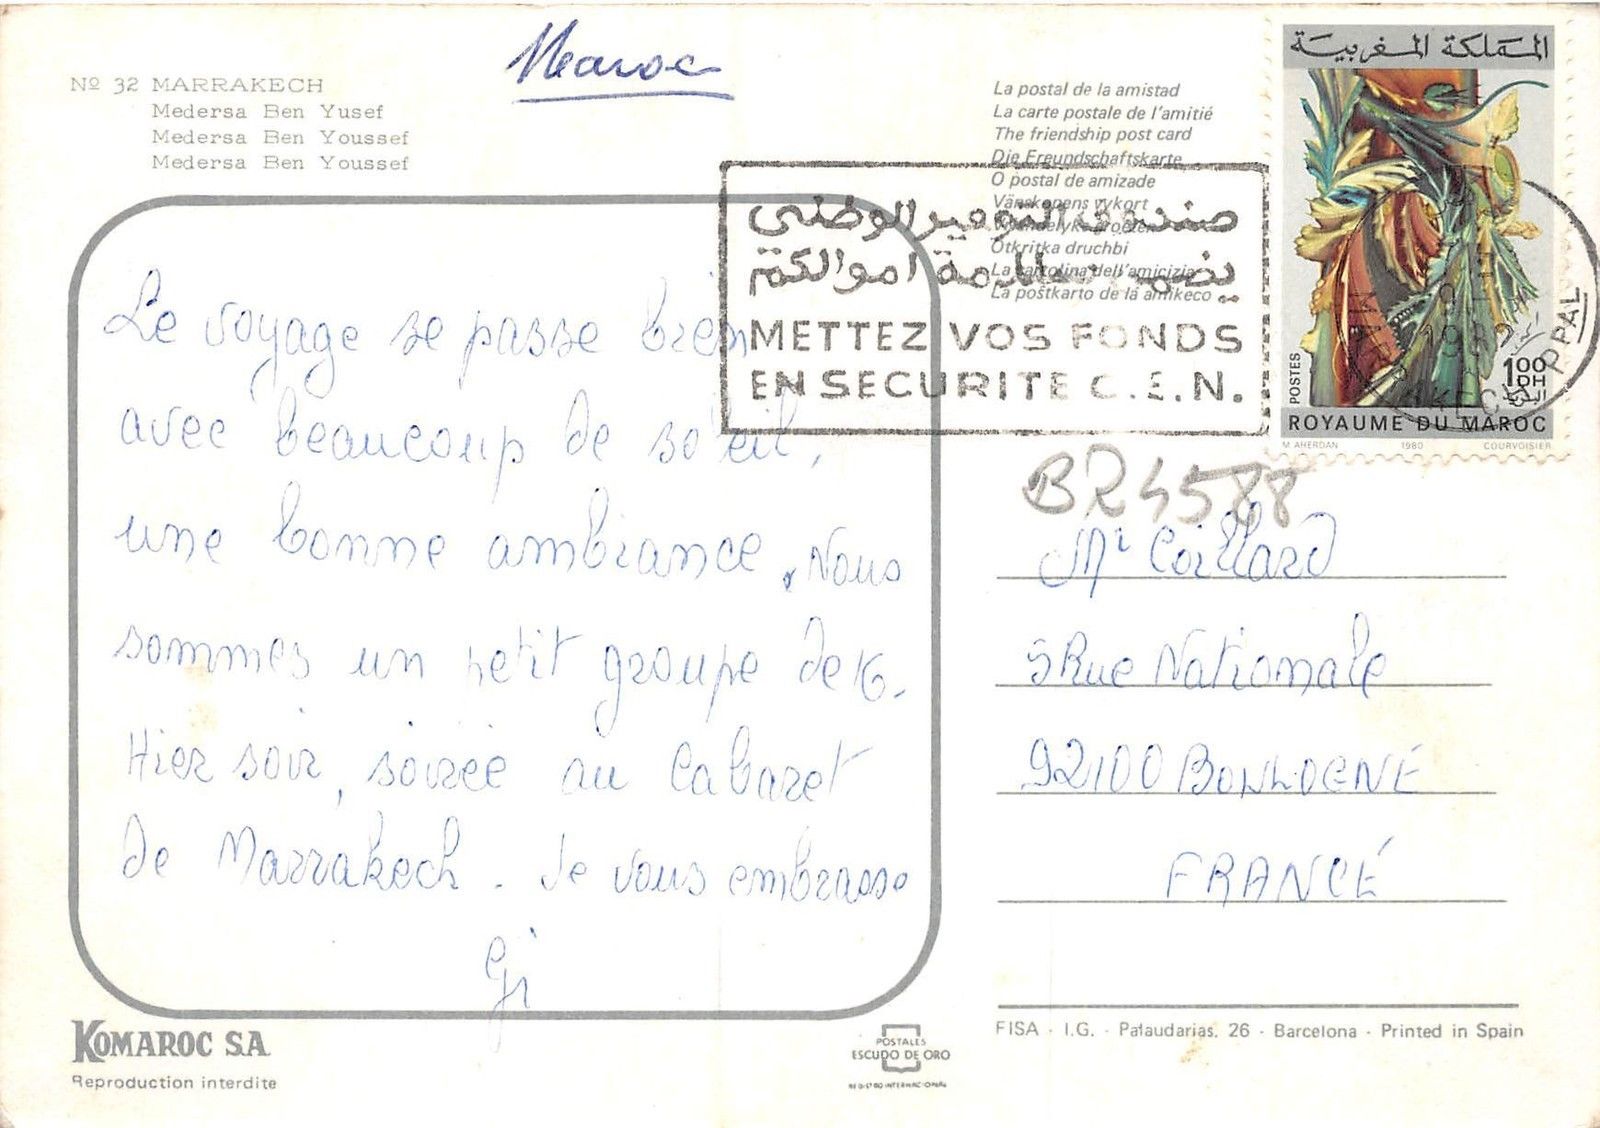 Maroc
Nº 32 MARRAKECH
Medersa Ben Yusef
Medersa Ben Youssef
Medersa Ben Youssef
Le voyage se passe bien
avec beaucoup de soleil,
une bonne ambiance. Nous
sommes un petit groupe de 16.
Hier soir, soirée au Cabaret
de Marrakech. Je vous embrasse
Gi
KOMAROC S.A.
Reproduction interdite
POSTALES
ESCUDO DE ORO
REGISTRO INTERNACIONAL
La postal de la amistad
La carte postale de l'amitié
The friendship post card
Die Freundschaftskarte
O postal de amizade
Vänskapens vykort
Otkritka druchbi
La cartolina dell'amicizia
La poŝtkarto de la amikeco
صندوق التوفير الوطني
يضمن سلامة اموالكم
METTEZ VOS FONDS
EN SECURITE C.E.N.
المملكة المغربية
POSTES
1.00
DH
ROYAUME DU MAROC
M. AHERDAN 1980 COURVOISIER
MARRAKECH PPAL
BR4588
Mr Caillard
5 Rue Nationale
92100 BOULOGNE
FRANCE
FISA - I.G. - Palaudarias, 26 - Barcelona - Printed in Spain